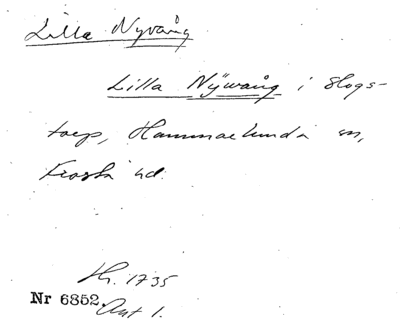 Lilla Nyvång
Lilla Nÿwång i Skogs-
torp, Hammarlunda sn,
Frosta hd.
Hr. 1735
Nr 6852. Ant 1.